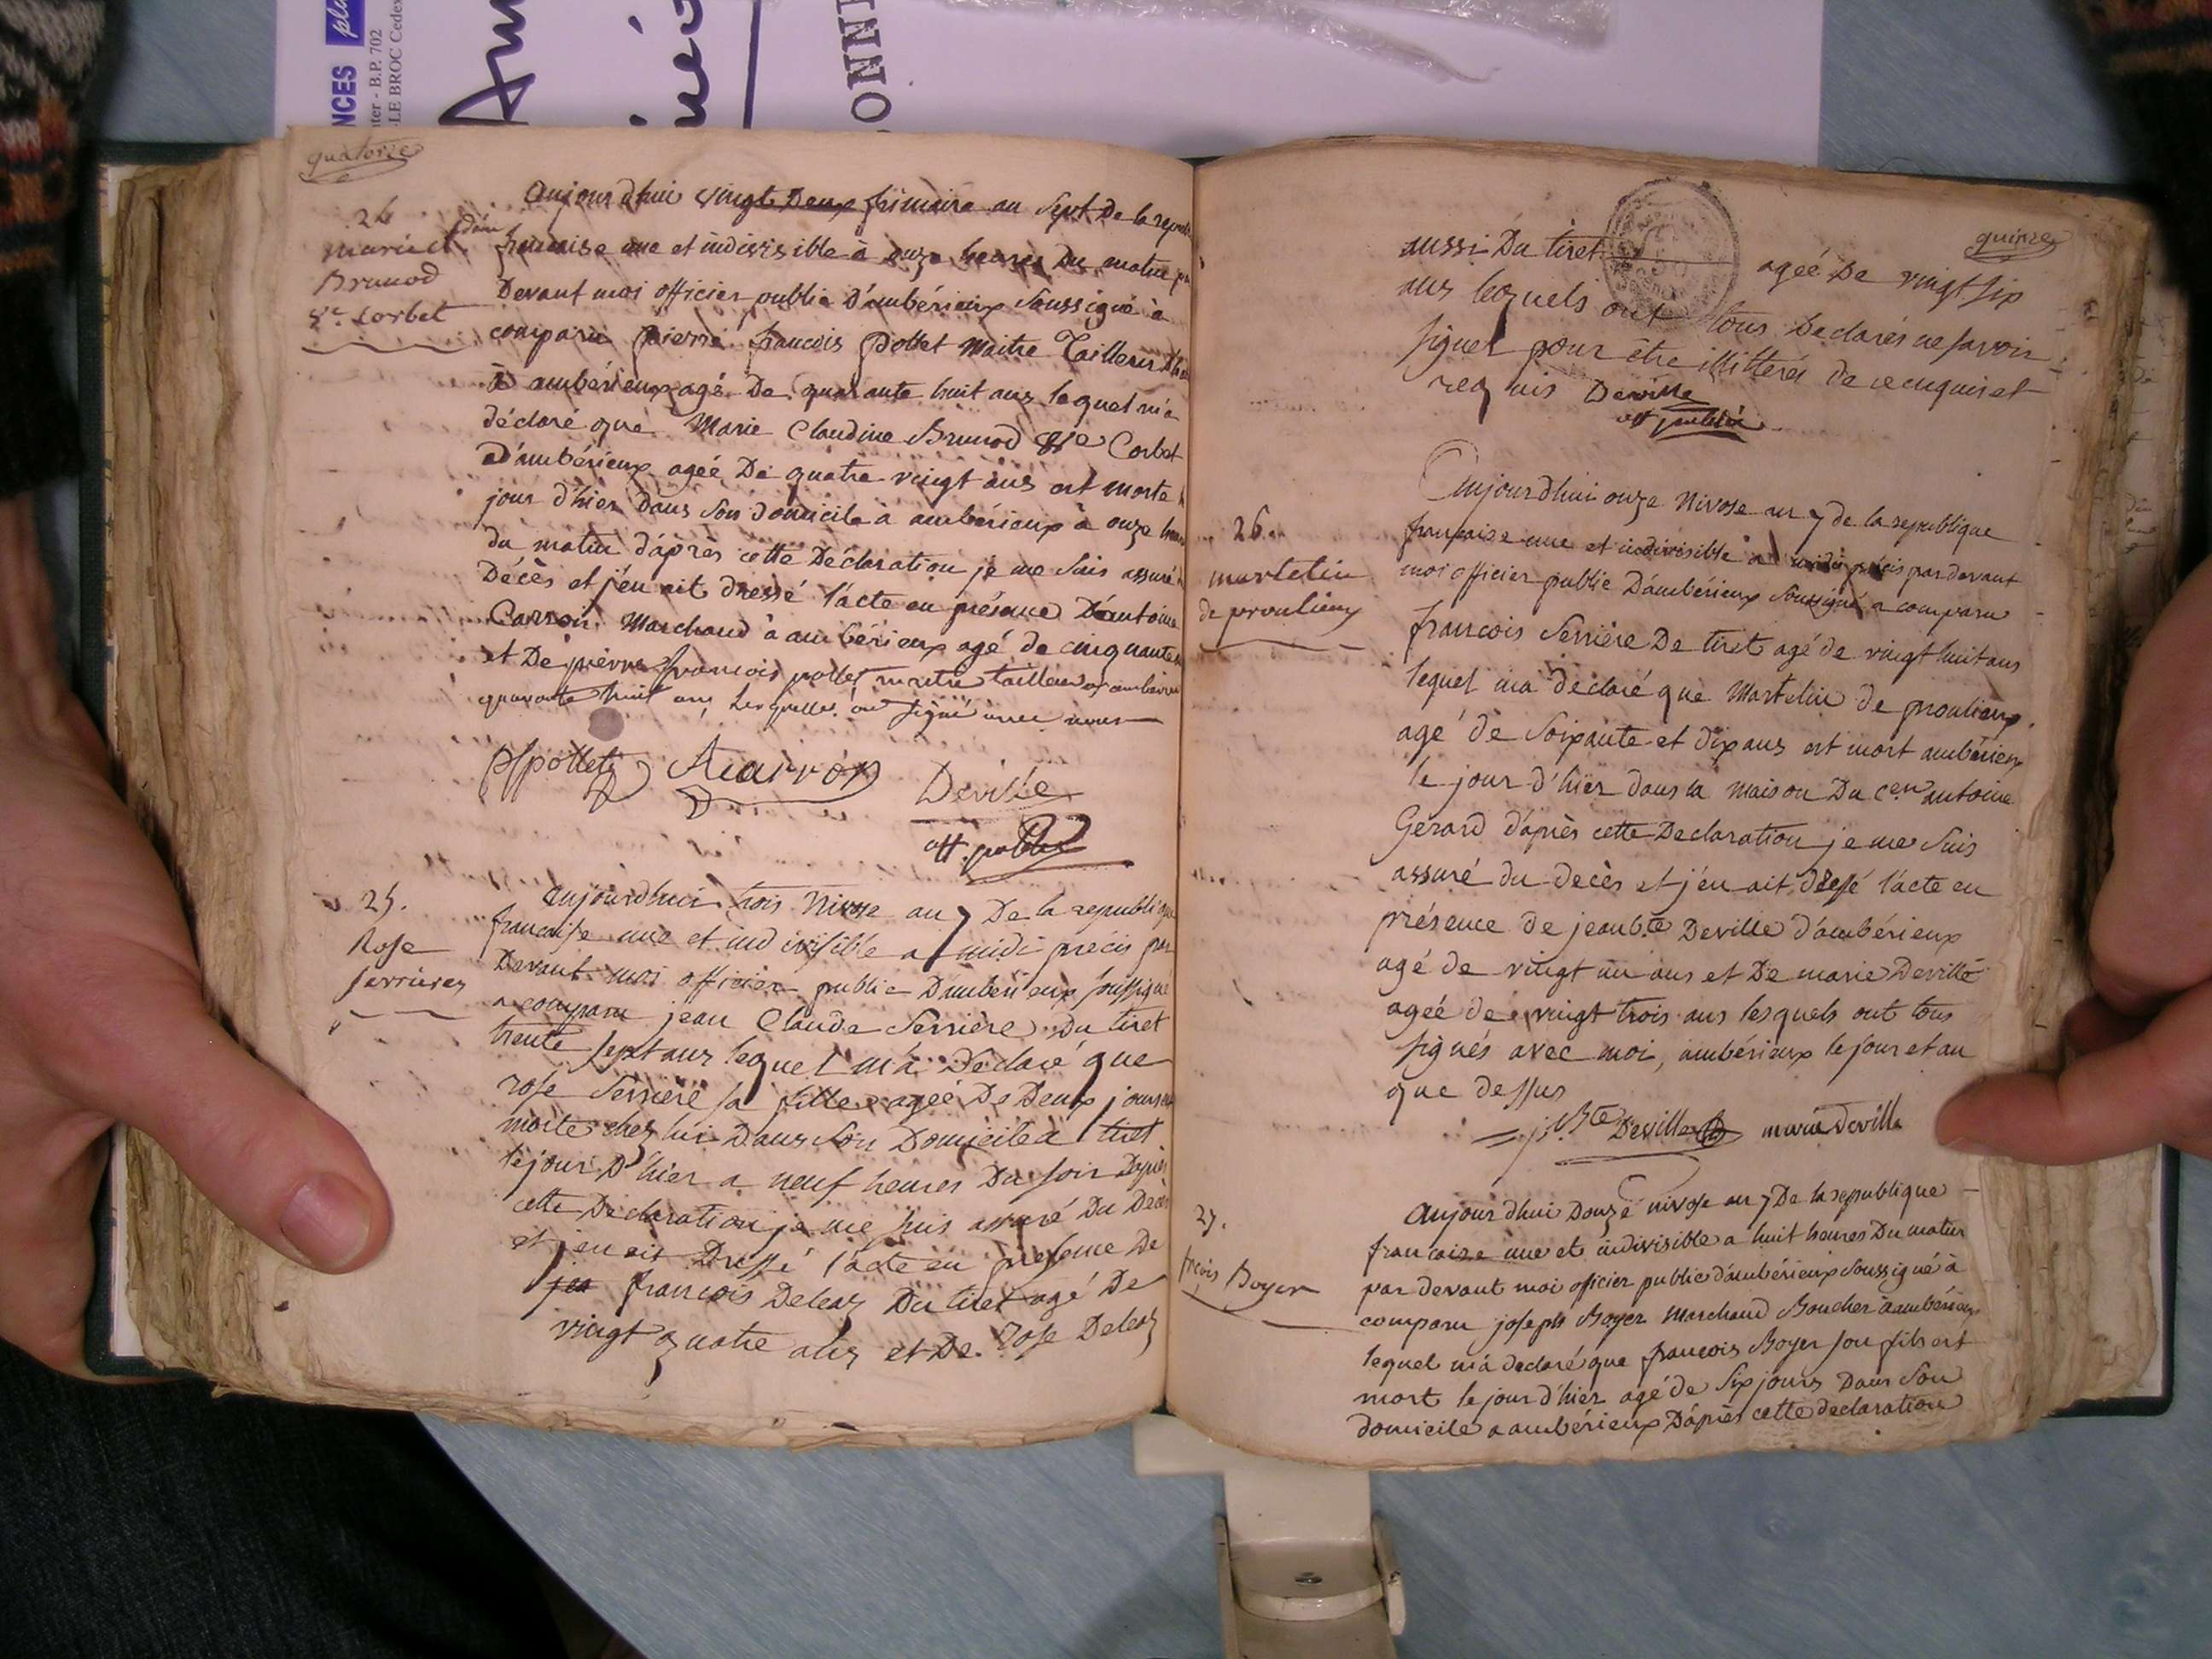 NCES
B.P. 702
LE BROC Cedex
quatorze
24
Brunod
Ve Corbet
aujourdhui vingt Deux frimaire an Sept De la repub
francaise une et indivisible à onze heures Du matin
Devant moi officier public D'ambérieux Soussigné à
comparu pierre francois pollet Maitre Tailleur
à ambérieux agé De quarante huit ans lequel m'a
déclaré que Marie Claudine Brunod Ve Corbet
D'ambérieux ageé De quatre vingt ans est morte
jour d'hier Dans Son domicile a ambérieux à onze
du matin d'après cette Déclaration je me Suis assuré
Décès et j'en ait dressé l'acte en présence D'antoine
Carron Marchand à ambérieux agé de cinquante
et De pierre francois pollet maitre tailleur
quarante huit ans Lesquelles on Signé avec nous
pfpollet Acarron Deville
off. public
25.
Rose
serrieres
aujourdhui trois Nivose an 7 De la republique
francaise une et indivisible a midi précis par
Devant moi officier public D'ambérieux soussigné
a comparu jean Claude Serrière Du tiret
trente sept ans lequel m'à Declaré que
rose Serrière sa fille ageé De Deux jours
morte chez lui Dans Son Domicile à tiret
le jour D'hier a neuf heures Du soir Dapres
cette Déclaration je me suis assuré Du Decès
et j'en ait Dressé l'acte en presence De
francois Deleaz Du tiret agé De
vingt quatre ans et De rose Deleaz
quinze
aussi Du tiret ageé De vingt six
ans lesquels ont tous Declarés ne savoir
signer pour être illitérés de ce enquis et
requis Deville
off public
26.
martelin
de proulieux
Aujourdhui onze Nivose an 7 de la republique
francaise une et indivisible a midi précis par devant
moi officier public D'ambérieux Soussigné a comparu
francois Serrière De tiret agé de vingt huit ans
lequel m'a declaré que Martelin de proulieux
agé de Soixante et dix ans est mort ambérieux
le jour d'hier dans la maison Du cen antoine
Gerard d'après cette Declaration je me Suis
assuré du decès et j'en ait dressé l'acte en
présence de jean bte Deville d'ambérieux
agé de vingt un ans et De marie Deville
ageé de vingt trois ans lesquels ont tous
signés avec moi, ambérieux le jour et an
que dessus
j. Bte Deville marie deville
27.
frcois Boyer
Aujourdhui Douze nivose an 7 De la republique
francaise une et indivisible a huit heures Du matin
par devant moi officier public d'ambérieux Soussigné à
comparu joseph Boyer Marchand Boucher à ambérieux
lequel m'à declaré que francois Boyer son fils est
mort le jour d'hier agé de Six jours Dans Son
domicile a ambérieux D'après cette declaration